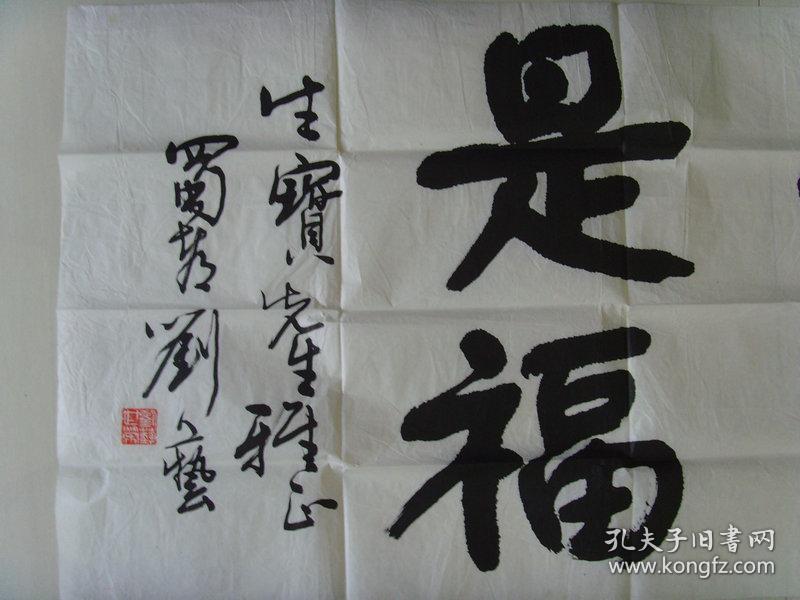 是福
生寶先生雅正
蜀都劉人藝
孔夫子旧書网
www.kongfz.com